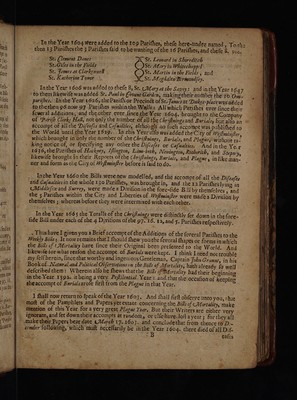 In the Year 1604 were added to the 109 Parishes, these here-under named, To the
than 13 Parishes the 3 Parishes said to be wanting of the 16 Parishes, and these 8,
St. Clement Danes
St. Giles in the Fields
St. James at Clarkenwell
St. Katherins Tower
St. Leonard in Shoreditch
St. Mary in Whitechappel
St. Martin in the Fields; and
St. Magdalen Bermondsey.
In the Year 1606 was added to these 8, St. Mary at the Savoy: and in the Year 1647
to them likewise was added St. Paul in Covent Garden, making their number the 10 Out-
parishes. In the Year 1626, the Parish or Precinct of St. James at Dukes-place was added
to the then 96 now 97 Parishes within the Walls: All which Parishes were since their
several additions; and the other ever since the Year 1604, brought to the Company
of Parish Clerks Hall, not only the number of all the Christnings and Burials, but also an
account of all the Diseases and Casualties, although no such account was published to
the World until the Year 1629. In this Year also was added the City of Westminster,
which brought in only the number of the Christnings, Burials, and Plagues, without ta-
king notice of, or specifying any other the Diseases or Casualties. And in the Year
1636, the Parishes of Hackney, Islington, Lambeth, Newington, Redriff, and Stepney,
likewise brought in their Reports of the Christnings, Burials, and Plagues, in like man-
ner and form as the City of Westminster before is said to do.
In the Year 1660 the Bills were new modelled, and the account of all the Diseases
and Casualties in the whole 130 Parishes, was brought in, and the 12 Parishes lying in
Middlesex and Surrey, were made a Division in the fore-side Bill by themselves; and
the 5 Parishes within the City and Liberties of Westminster were made a Division by
themselves; whereas before they were intermixed with each other.
In the Year 1665 the Totalls of the Christnings were distinctly set down in the fore-
side Bill under each of the 4 Divisions of the 97. 16. 12, and 5. Parishes respectively.
Thus have I given you a Brief account of the Additions of the several Parishes to the
Weekly Bills; It now remains that I should shew you the several shapes or forms in which
the Bills of Mortality have since their Original been presented to the World. And
likewise for what reason the account of Burials were kept. I think I need not trouble
my self herein, since that worthy and ingenious Gentleman, Captain John Graunt, in his
Book of Natural and Political Observations on the Bills of Mortality, hath already so well
described them: Wherein also he shews that the Bills of Mortality had their beginning
in the Year 1592. it being a very Pestilential Year; and that the occasion of keeping
the account of Burials arose first from the Plague in that Year.
I shall now return to speak of the Year 1603. And shall first observe unto you, that
most of the Pamphlets and Papers yet extant concerning the Bills of Mortality, make
mention of this Year for a very great Plague Year, But their Writers are either very
ignorant, and set down their accounts at random, or else have lost a year; for they all
make their Papers bear date March 17. 1603. and conclude that from thence to De-
cember following, which must necessarily be in the Year 1604. there died of all Dis-
B
eases